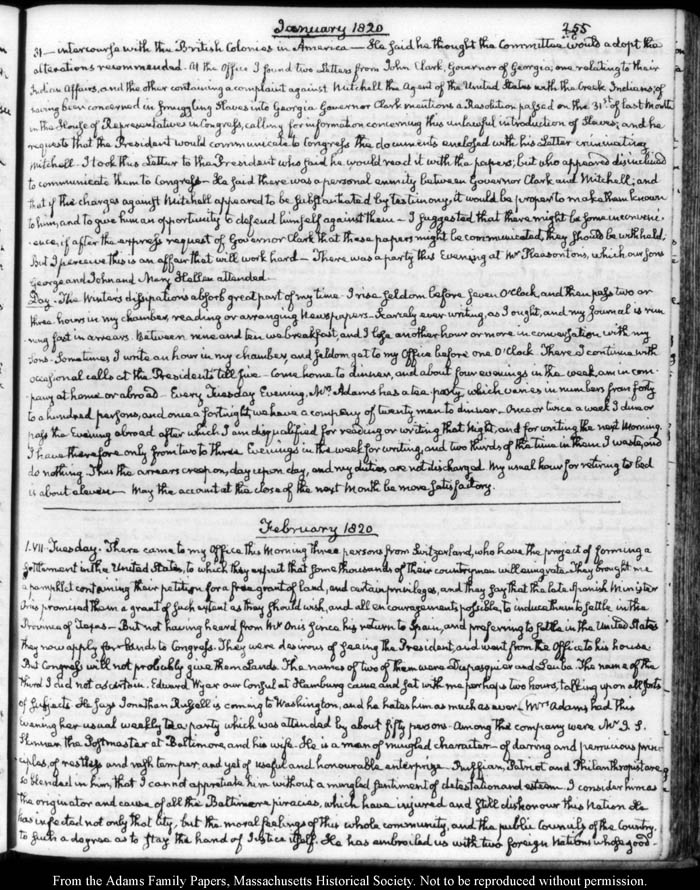 January 1820
255
31 — intercourse with the British Colonies in America — He said he thought the Committee would adopt the
alterations recommended. At the Office I found two Letters from John Clark, Governor of Georgia; one relating to their
Indian Affairs, and the other containing a complaint against Mitchell the Agent of the United States with the Creek Indians, of
having been concerned in smuggling Slaves into Georgia. Governor Clark mentions a Resolution passed on the 31st of last Month
in the House of Representatives in Congress, calling for information concerning this unlawful introduction of Slaves; and he
requests that the President would communicate to Congress the documents enclosed with his Letter criminating
Mitchell. I took this Letter to the President who said he would read it with the papers; but who appeared disinclined
to communicate them to Congress — He said there was a personal enmity between Governor Clark and Mitchell; and
that if the charges against Mitchell appeared to be substantiated by testimony, it would be proper to make them known
to him, and to give him an opportunity to defend himself against them — I suggested that there might be some inconveni-
ence, if after the express request of Governor Clark that these papers might be communicated, they should be withheld.
But I perceive this is an affair that will work hard — There was a party this Evening at Mr Pleasonton's, which our Sons
George and John and Mary Hellen attended —
Day. The Winter's dissipations absorb great part of my time. I rise seldom before seven O'Clock, and then pass two or
three hours in my chamber, reading or arranging Newspapers — Scarcely ever writing, as I ought, and my Journal is run-
ning fast in arrears. Between nine and ten we breakfast, and I lose another hour or more in conversation with my
Sons — Sometimes I write an hour in my chamber, and seldom get to my Office before one O'Clock. There I continue with
occasional calls at the President's till five — Come home to dinner, and about four evenings in the week am in com-
pany at home or abroad — Every Tuesday Evening, Mrs Adams has a tea party, which varies in numbers from forty
to a hundred persons, and once a fortnight, we have a company of twenty men to dinner — Once or twice a week I dine or
pass the Evening abroad, after which I am disqualified for reading or writing that Night, and for writing the next Morning.
I have therefore only from two to three Evenings in the week for writing, and two thirds of the time in them I waste, and
do nothing. Thus the arrears creep on, day upon day, and my duties are not discharged. My usual hour for retiring to bed
is about eleven — May the account at the close of the next Month be more satisfactory.
February 1820
1. VII. Tuesday. There came to my Office this Morning three persons from Switzerland, who have the project of forming a
Settlement in the United States, to which they expect that some thousands of their countrymen will emigrate. They brought me
a pamphlet containing their petition for a free grant of land, and certain privileges, and they say that the late Spanish Minister
Onis promised them a grant of such extent as they should wish, and all encouragements possible, to induce them to settle in the
Province of Texas — But not having heard from Mr Onis since his return to Spain, and preferring to settle in the United States
they now apply for lands to Congress. They were desirous of seeing the President, and went from the Office to his house.
But Congress will not probably give them Lands. The names of two of them were Dupasquier and Leuba. The name of the
third I did not ascertain. Edward Wyer our Consul at Hamburg came and sat with me perhaps two hours, talking upon all sorts
of subjects. He says Jonathan Russell is coming to Washington, and he hates him as much as ever. Mrs Adams had this
Evening her usual weekly tea party which was attended by about fifty persons. Among the company were Mr J. S.
Skinner the Postmaster at Baltimore, and his wife. He is a man of mingled character — of daring and pernicious prin-
ciples, of restless and rash temper, and yet of useful and honourable enterprize. Ruffian, Patriot and Philanthropist are
so blended in him, that I cannot appreciate him without a mingled sentiment of detestation and esteem. I consider him as
the originator and cause of all the Baltimore piracies, which have injured and still dishonour this Nation. He
has infected not only that city, but the moral feelings of this whole community, and the public Councils of the Country,
to such a degree as to stay the hand of Justice itself. He has embroiled us with two foreign Nations whose good-
From the Adams Family Papers, Massachusetts Historical Society. Not to be reproduced without permission.